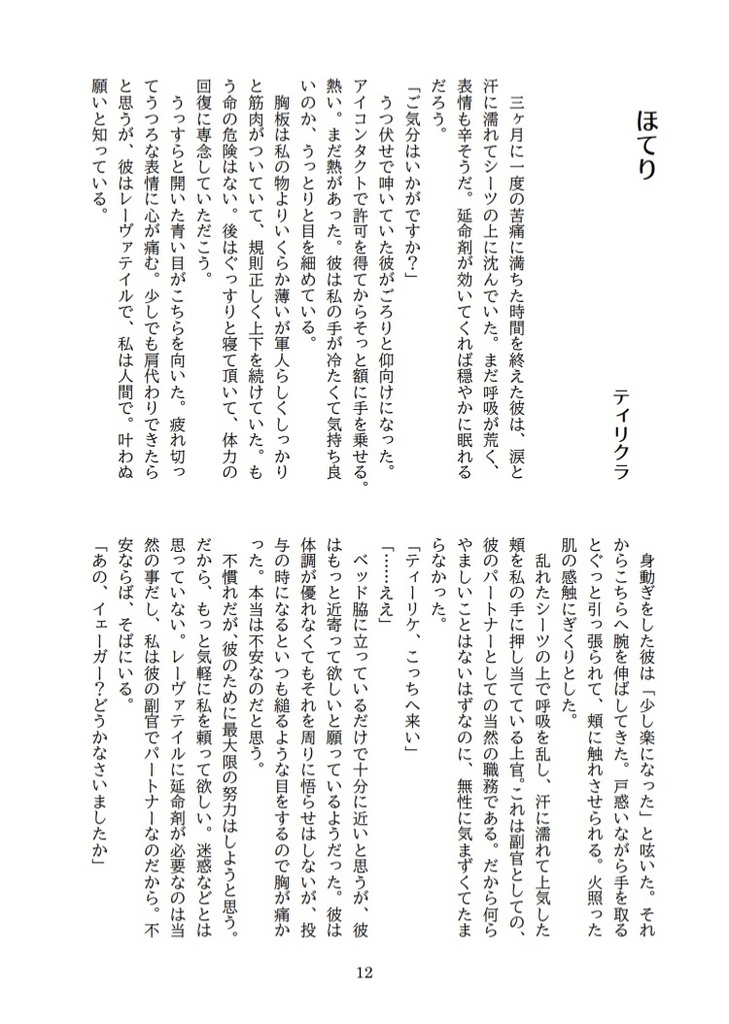 ほてり
ティリクラ
　三ヶ月に一度の苦痛に満ちた時間を終えた彼は、涙と
汗に濡れてシーツの上に沈んでいた。まだ呼吸が荒く、
表情も辛そうだ。延命剤が効いてくれば穏やかに眠れる
だろう。
「ご気分はいかがですか？」
　うつ伏せで呻いていた彼がごろりと仰向けになった。
アイコンタクトで許可を得てからそっと額に手を乗せる。
熱い。まだ熱があった。彼は私の手が冷たくて気持ち良
いのか、うっとりと目を細めている。
　胸板は私の物よりいくらか薄いが軍人らしくしっかり
と筋肉がついていて、規則正しく上下を続けていた。も
う命の危険はない。後はぐっすりと寝て頂いて、体力の
回復に専念していただこう。
　うっすらと開いた青い目がこちらを向いた。疲れ切っ
てうつろな表情に心が痛む。少しでも肩代わりできたら
と思うが、彼はレーヴァテイルで、私は人間で。叶わぬ
願いと知っている。
　身動ぎをした彼は「少し楽になった」と呟いた。それ
からこちらへ腕を伸ばしてきた。戸惑いながら手を取る
とぐっと引っ張られて、頬に触れさせられる。火照った
肌の感触にぎくりとした。
　乱れたシーツの上で呼吸を乱し、汗に濡れて上気した
頬を私の手に押し当てている上官。これは副官としての、
彼のパートナーとしての当然の職務である。だから何ら
やましいことはないはずなのに、無性に気まずくてたま
らなかった。
「ティーリケ、こっちへ来い」
「……ええ」
　ベッド脇に立っているだけで十分に近いと思うが、彼
はもっと近寄って欲しいと願っているようだった。彼は
体調が優れなくてもそれを周りに悟らせはしないが、投
与の時になるといつも縋るような目をするので胸が痛か
った。本当は不安なのだと思う。
　不慣れだが、彼のために最大限の努力はしようと思う。
だから、もっと気軽に私を頼って欲しい。迷惑などとは
思っていない。レーヴァテイルに延命剤が必要なのは当
然の事だし、私は彼の副官でパートナーなのだから。不
安ならば、そばにいる。
「あの、イェーガー？どうかなさいましたか」
12